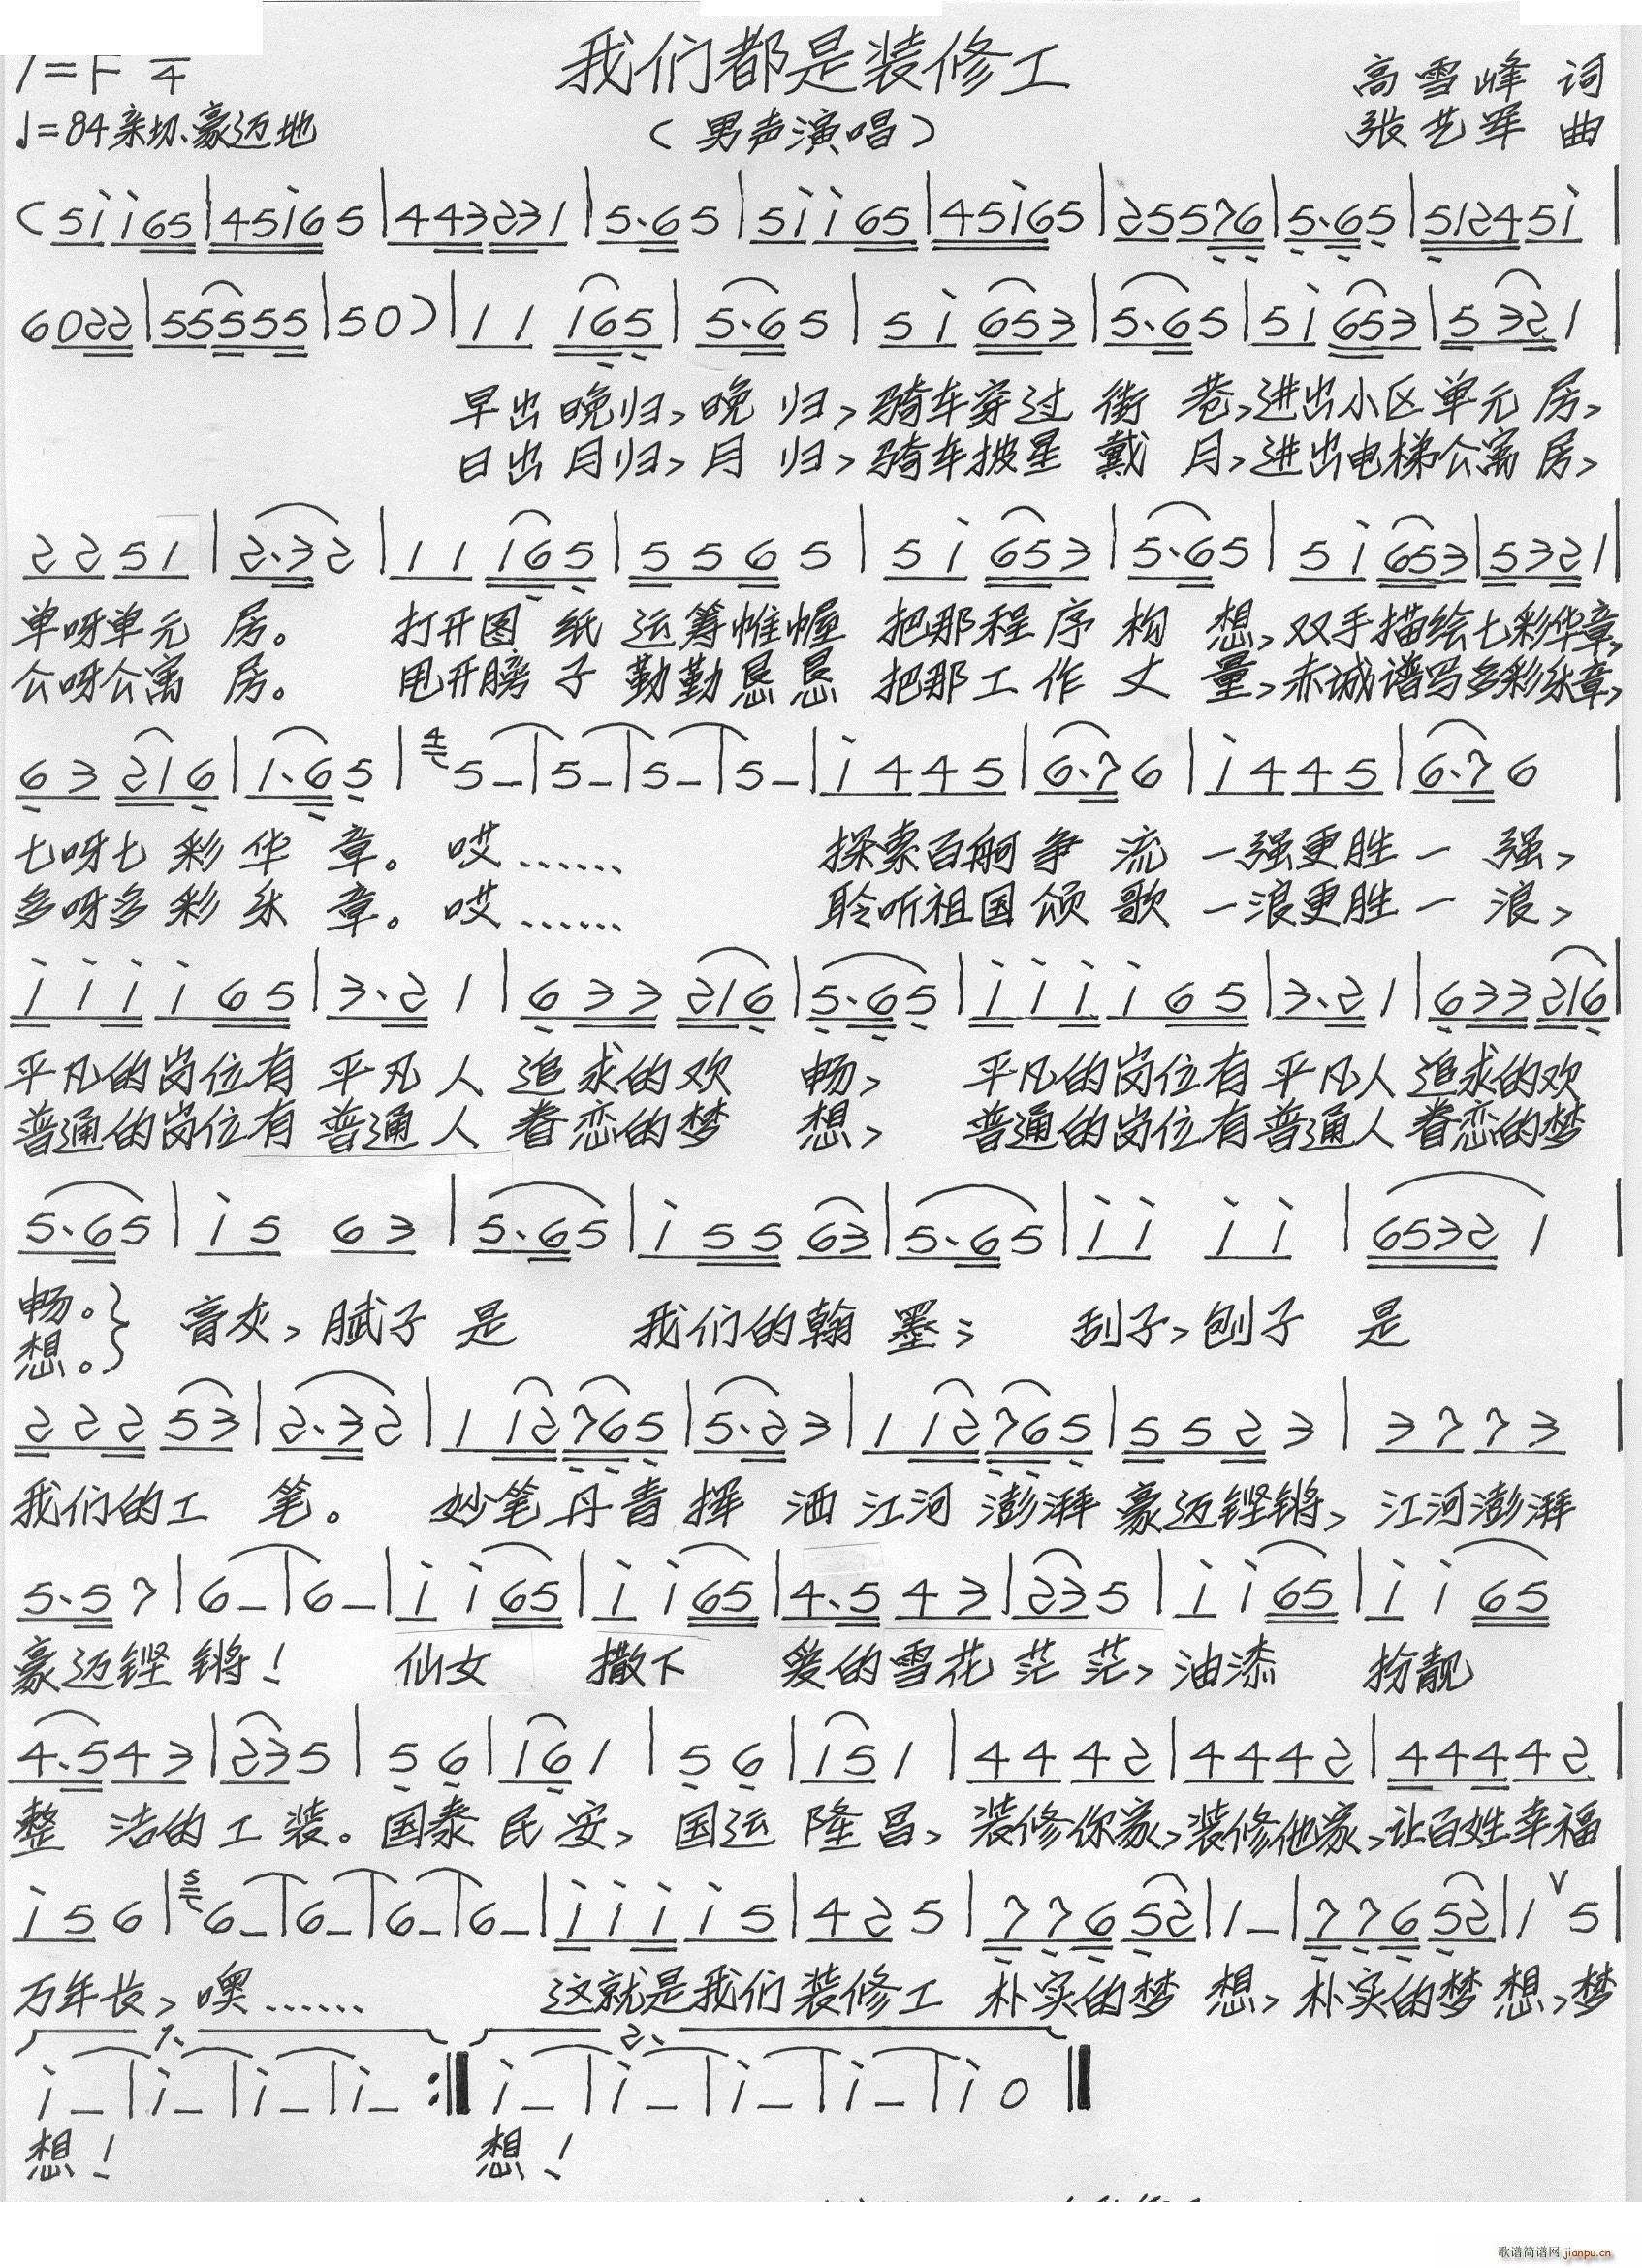 我们都是装修工
1=F 4
高雪峰 词
♩=84 亲切、豪迈地
（男声演唱）
张艺军 曲
(5i i65|45i65|443231|5·65|5i i65|45i65|25576|5·65|51245i|
6022|55555|50)|11 165|5·65|5i 653|5·65|5i653|5321|
早出晚归，晚 归，骑车穿过 街 巷，进出小区单元房，
日出月归，月 归，骑车披星 戴 月，进出电梯公寓房，
2251|2·32|11 165|5565|5i 653|5·65|5i 653|5321|
单呀单元 房。 打开图 纸 运筹帷幄 把那程序 构 想，双手描绘七彩华章，
公呀公寓 房。 甩开膀 子 勤勤恳恳 把那工作 丈 量，赤城谱写多彩乐章，
63 216|1·65|4 5-|5-|5-|5-|i445|6·76|i445|6·76|
七呀七 彩 华 章。哎…… 探索百舸争 流 一强更胜一 强，
多呀多 彩 乐 章。哎…… 聆听祖国颂 歌 一浪更胜一 浪，
iiii65|3·21|633 216|5·65|iiii65|3·21|633216|
平凡的岗位有 平凡人 追求的欢 畅， 平凡的岗位有平凡人追求的欢
普通的岗位有 普通人 眷恋的梦 想， 普通的岗位有普通人眷恋的梦
5·65|i5 63|5·65|i55 63|5·65|ii ii|6532 1|
畅。} 膏灰，腻子 是 我们的翰 墨； 刮子，刨子 是
想。}
222 53|2·32|1 12765|5·23|1 12765|5523|3773|
我们的工 笔。 妙笔丹青挥 洒 江河 澎湃 豪迈铿锵，江河澎湃
5·57|6-|6-|i i65|i i65|4·543|235|i i65|i i 65
豪迈铿锵！ 仙女 撒下 爱的雪花茫茫，油漆 扮靓
4·543|235|56|161|56|151|4442|4442|44442|
整 洁的工装。国泰民安，国运 隆昌，装修你家，装修他家，让百姓幸福
i56|5 6-|6-|6-|6-|iiii5|425|776 52|1-|77652|1 V 5|
万年长，噢…… 这就是我们装修工 朴实的梦 想，朴实的梦想，梦
1. 2.
i-|i-|i-|i- :‖ i-|i-|i-|i-|i 0‖
想！ 想！
歌谱简谱网 jianpu.cn